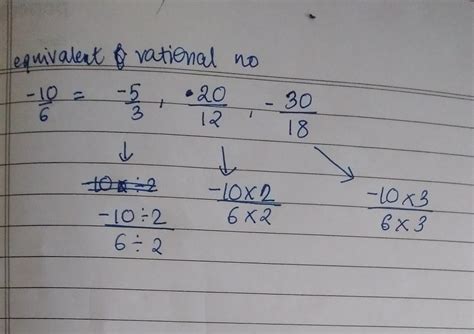 equivalent rational no
-10/6 = -5/3, -20/12, -30/18
↓ ↓ ↘
-10÷2/6÷2 -10×2/6×2 -10×3/6×3